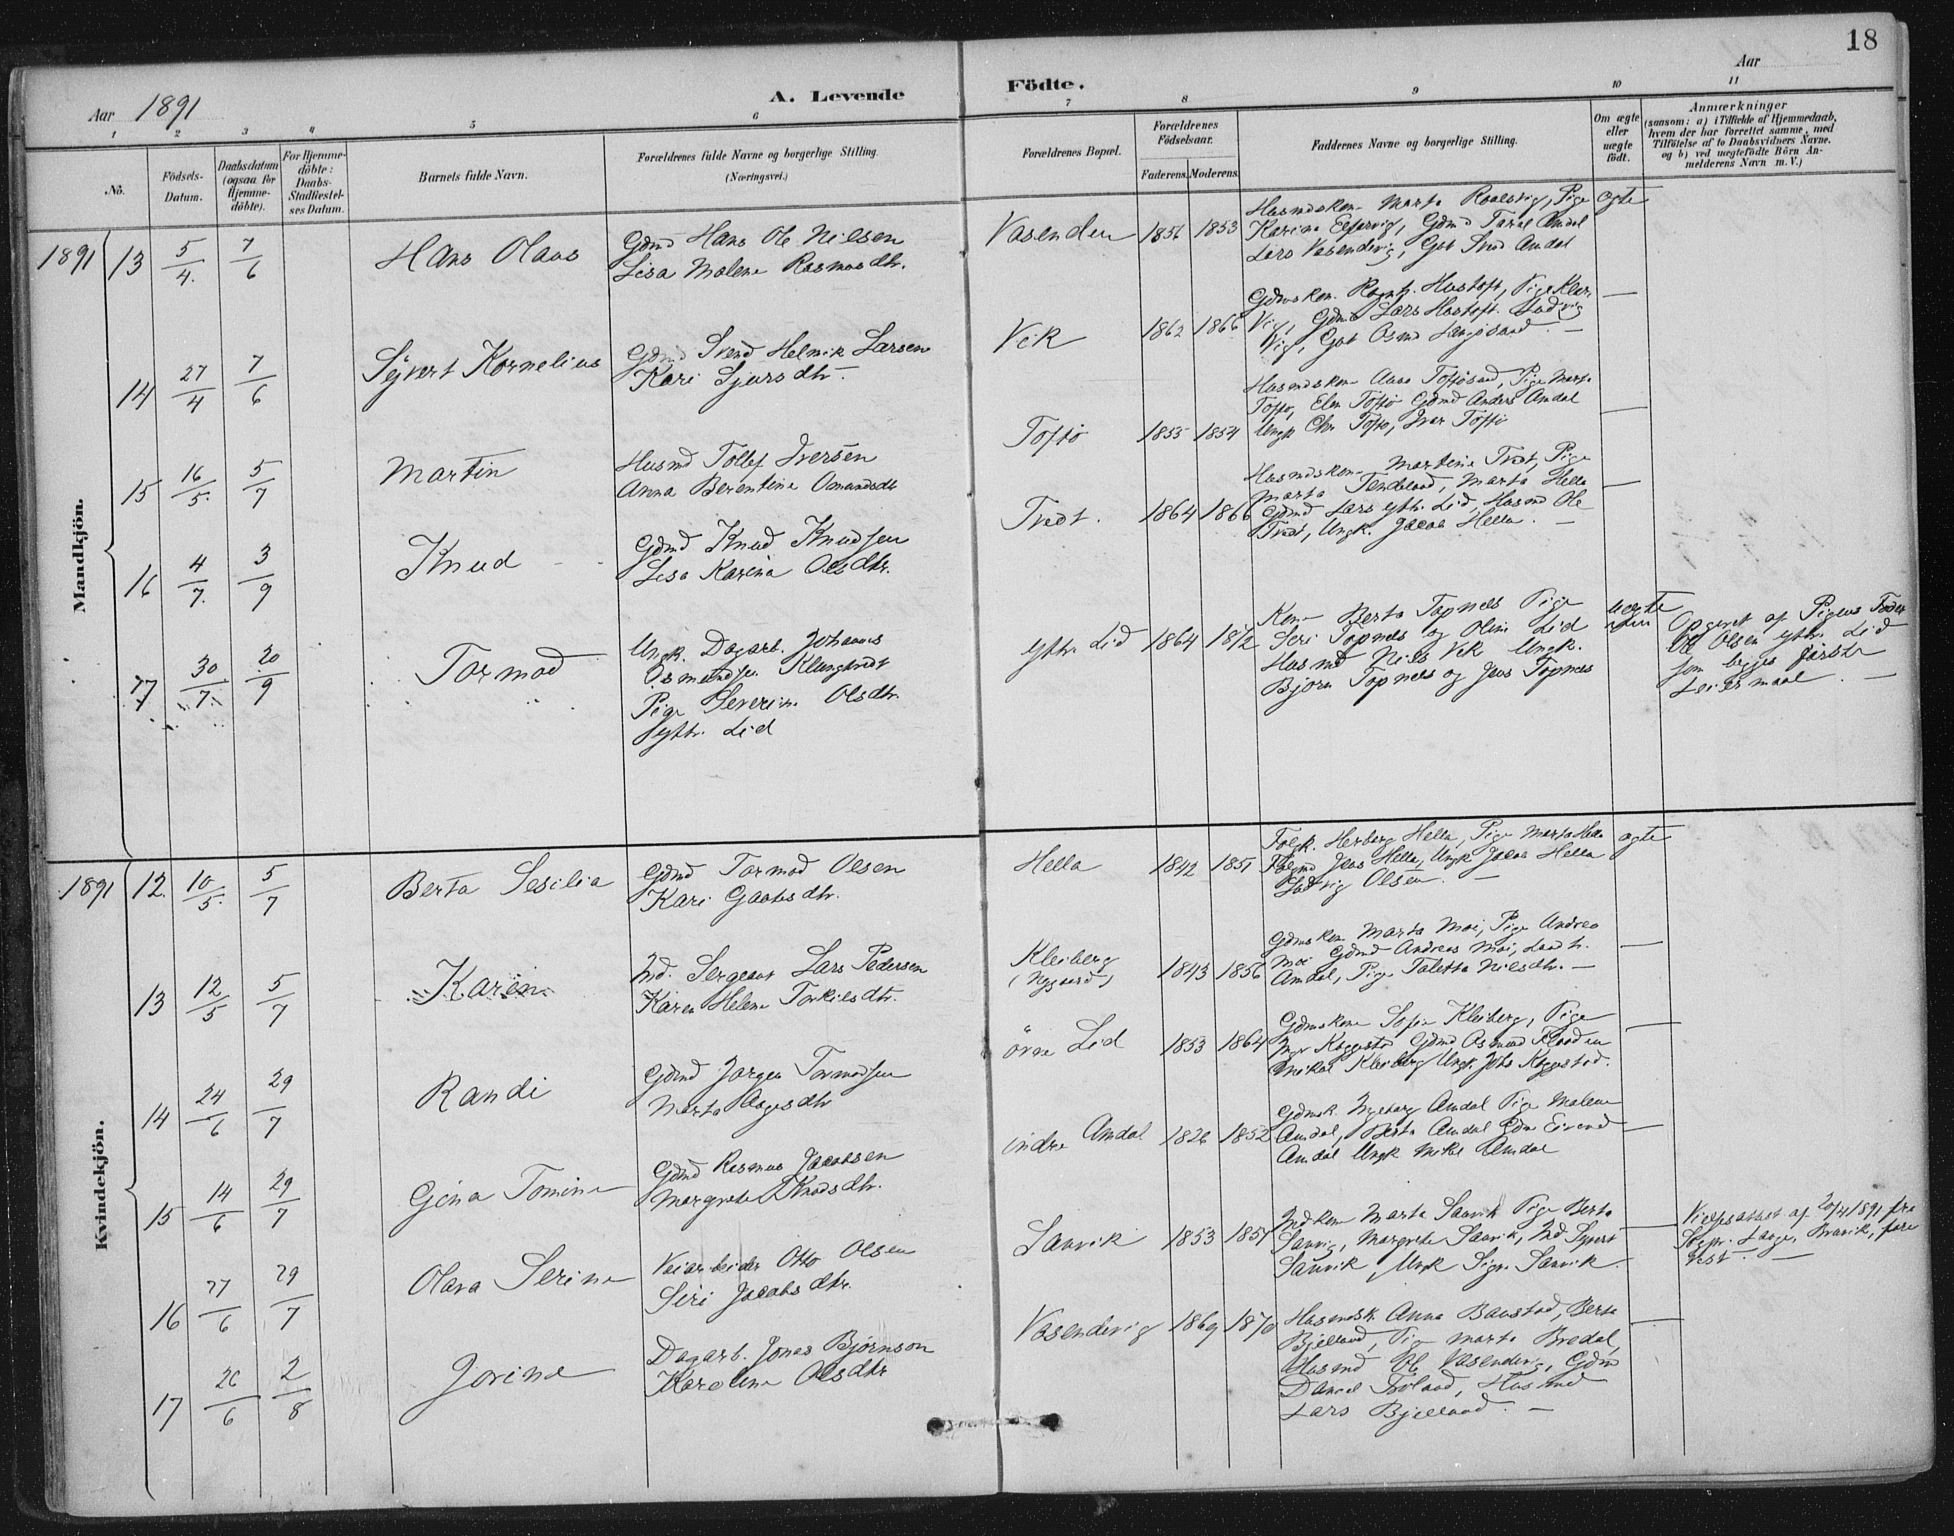 18
Aar 1891
A. Levende
Födte.
Aar
1 2 3 4 5 6 7 8 9 10 11
No.
Födsels-Datum.
Daabsdatum (ogsaa for Hjemme-döbte).
For Hjemme-döbte: Daabs-Stadfæstelses Datum.
Barnets fulde Navn.
Forældrenes fulde Navne og borgerlige Stilling.
(Næringsvei.)
Forældrenes Bopæl.
Forældrenes Födselsaar.
Faderens. Moderens.
Faddernes Navne og borgerlige Stilling.
Om ægte eller uægte födt.
Anmærkninger
(saasom: a) i Tilfælde af Hjemmedaab,
hvem der har forrettet samme, med
Tilföielse af to Daabsvidners Navne.
og b) ved uægtefödte Börn An-
melderens Navn m. V.)
Mandkjön.
1891 13 5/4. 7/6 Hans Olaus
Gdmd Hans Ole Nilsen
Lisa Malene Rasmusdtr.
Vasenden 1856 1853
Husmdskon. Marta Roalsvig, Pige
Karina Eljervig, Gdmd Tarel Amdal
Lars Vasendvig, Gbt Svend Amdal
ægte
14 27/4 7/6 Sijvert Kornelius
Gdmd Svend Helmik Larsen
Kari Sjursdtr.
Vik 1862 1866
Gdmskon. Hustoft, Pige
Vig, Gdmd Lars Hustoft. Ludvig
Vig, Gbt Osmd
—
15 16/5. 5/7 Martin
Husmd Tollef Iversen
Anna Berentine Omundsdtr
Tofsö 1855 1854
Husmdskon Anna Pige Marta
Tofsö, Elen Tofsö Gdmd Anders Amdal
Ungk Chr Tofsö, Iver Tofsö
—
16 4/7. 3/9 Knud
Gdmd Knud Knudsen
Lisa Karina Olsdtr.
Tvedt. 1864 1866
Husmdskon Martine Tvedt, Pige
Marta Marta Hella
Gdmd Lars Ytr. Lid, Husmd Ole
Tvedt, Ungk. Jacob Hella. —
—
17 30/7. 20/9 Tormod
Ungk. Dagarb. Johannes
Osmundsen Klungtvedt
Pige Severine Olsdtr.
Ytr. Lid
Ytr. Lid 1864 1872
Kone Berta Topnes Pige
Siri Topnes og Oline Lid
Husmd Nils Vik Ungk.
Bjorn Topnes og Jens Topnes
uægte
Opgivet af Pigens Fader
Ole Olsen Ytr. Lid
som begges første
Leiermaal. —
Kvindekjön.
1891 12. 10/5. 5/7 Berta Sesilia
Gdmd Tormod Olsen
Kari Gaabsdtr.
Hella 1842 1851
Folgk. Herborg Hella, Pige Marta Hella
Jens Hella, Ungk. Jacob Hella
Ludvig Olsen. —
ægte
13 12/5 5/7 Karen
Ind. Sergeant Lars Pedersen
Karen Helene Torkilsdtr.
Kleiberg
(Nygaard) 1843 1856
Gdmskon Marta Moi, Pige Andrea
Moi Gdmd Andreas Moi,
Amdal, Pige Taletta Nilsdtr. —
—
14 24/6 29/7 Randi
Gdmd Jörgen Tormodsen
Marta Aagesdtr
övre Lid 1853 1864
Gdmskone Sofie Kleiberg, Pige
Gdmd Osmund
Mikal Kleiberg Ungk. Johs
—
15 14/6 29/7 Gina Tomine
Gdmd Rasmus Jacobsen
Margrete Knudsdtr.
indre Amdal 1826 1852
Gdmsk. Ingeborg Amdal Pige Malene
Amdal, Berta Amdal Gdm Eivend
Amdal Ungk Mikal Amdal
—
16 27/6 29/7 Olava Serine
Veiarbeider Otto Olsen
Siri Jacobsdtr.
Sanvik 1853 1857
Indkone Marta Sanvik Pige Berta
Sanvig, Margrete Sanvik, Ind Syvert
Sanvik, Ungk Sanvik.
—
Vielsesattest af 20/7 1891 fra
Sogpr. Lange, fore
vist. —
17 26/6 2/8 Jorine
Dagarb. Jonas Bjørnson
Karoline Olsdtr
Vasendvig 1869 1870
Husmdsk. Anna Baustad, Berta
Bjelland, Pig Marta Bredal,
Husmd Ole Vasendvig, Gdm
Daniel Husmd
Lars Bjelland. —
—